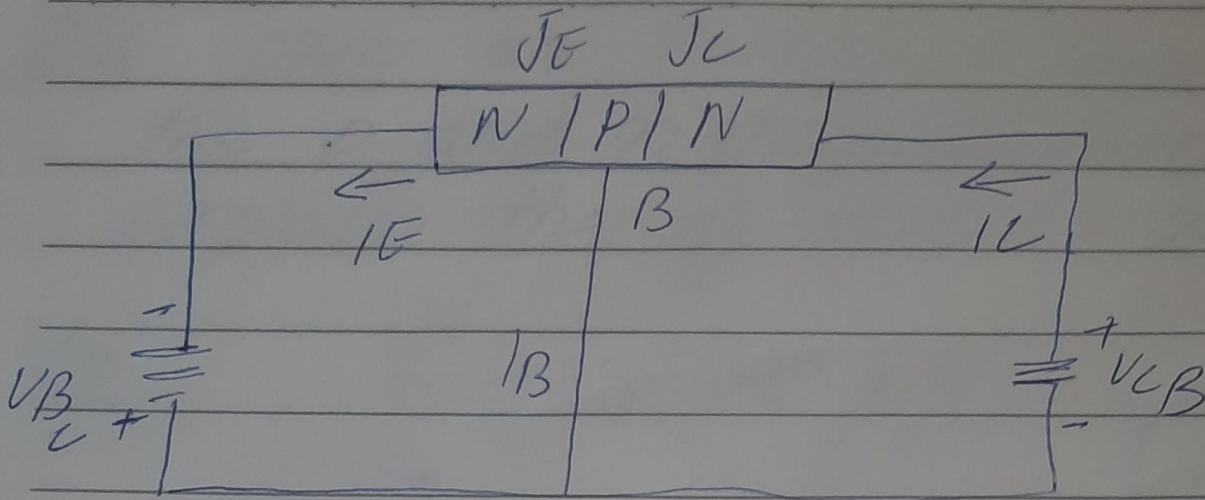 JE JC
N / P / N
B
IE IC
- +
IB
VB VCB
C + -